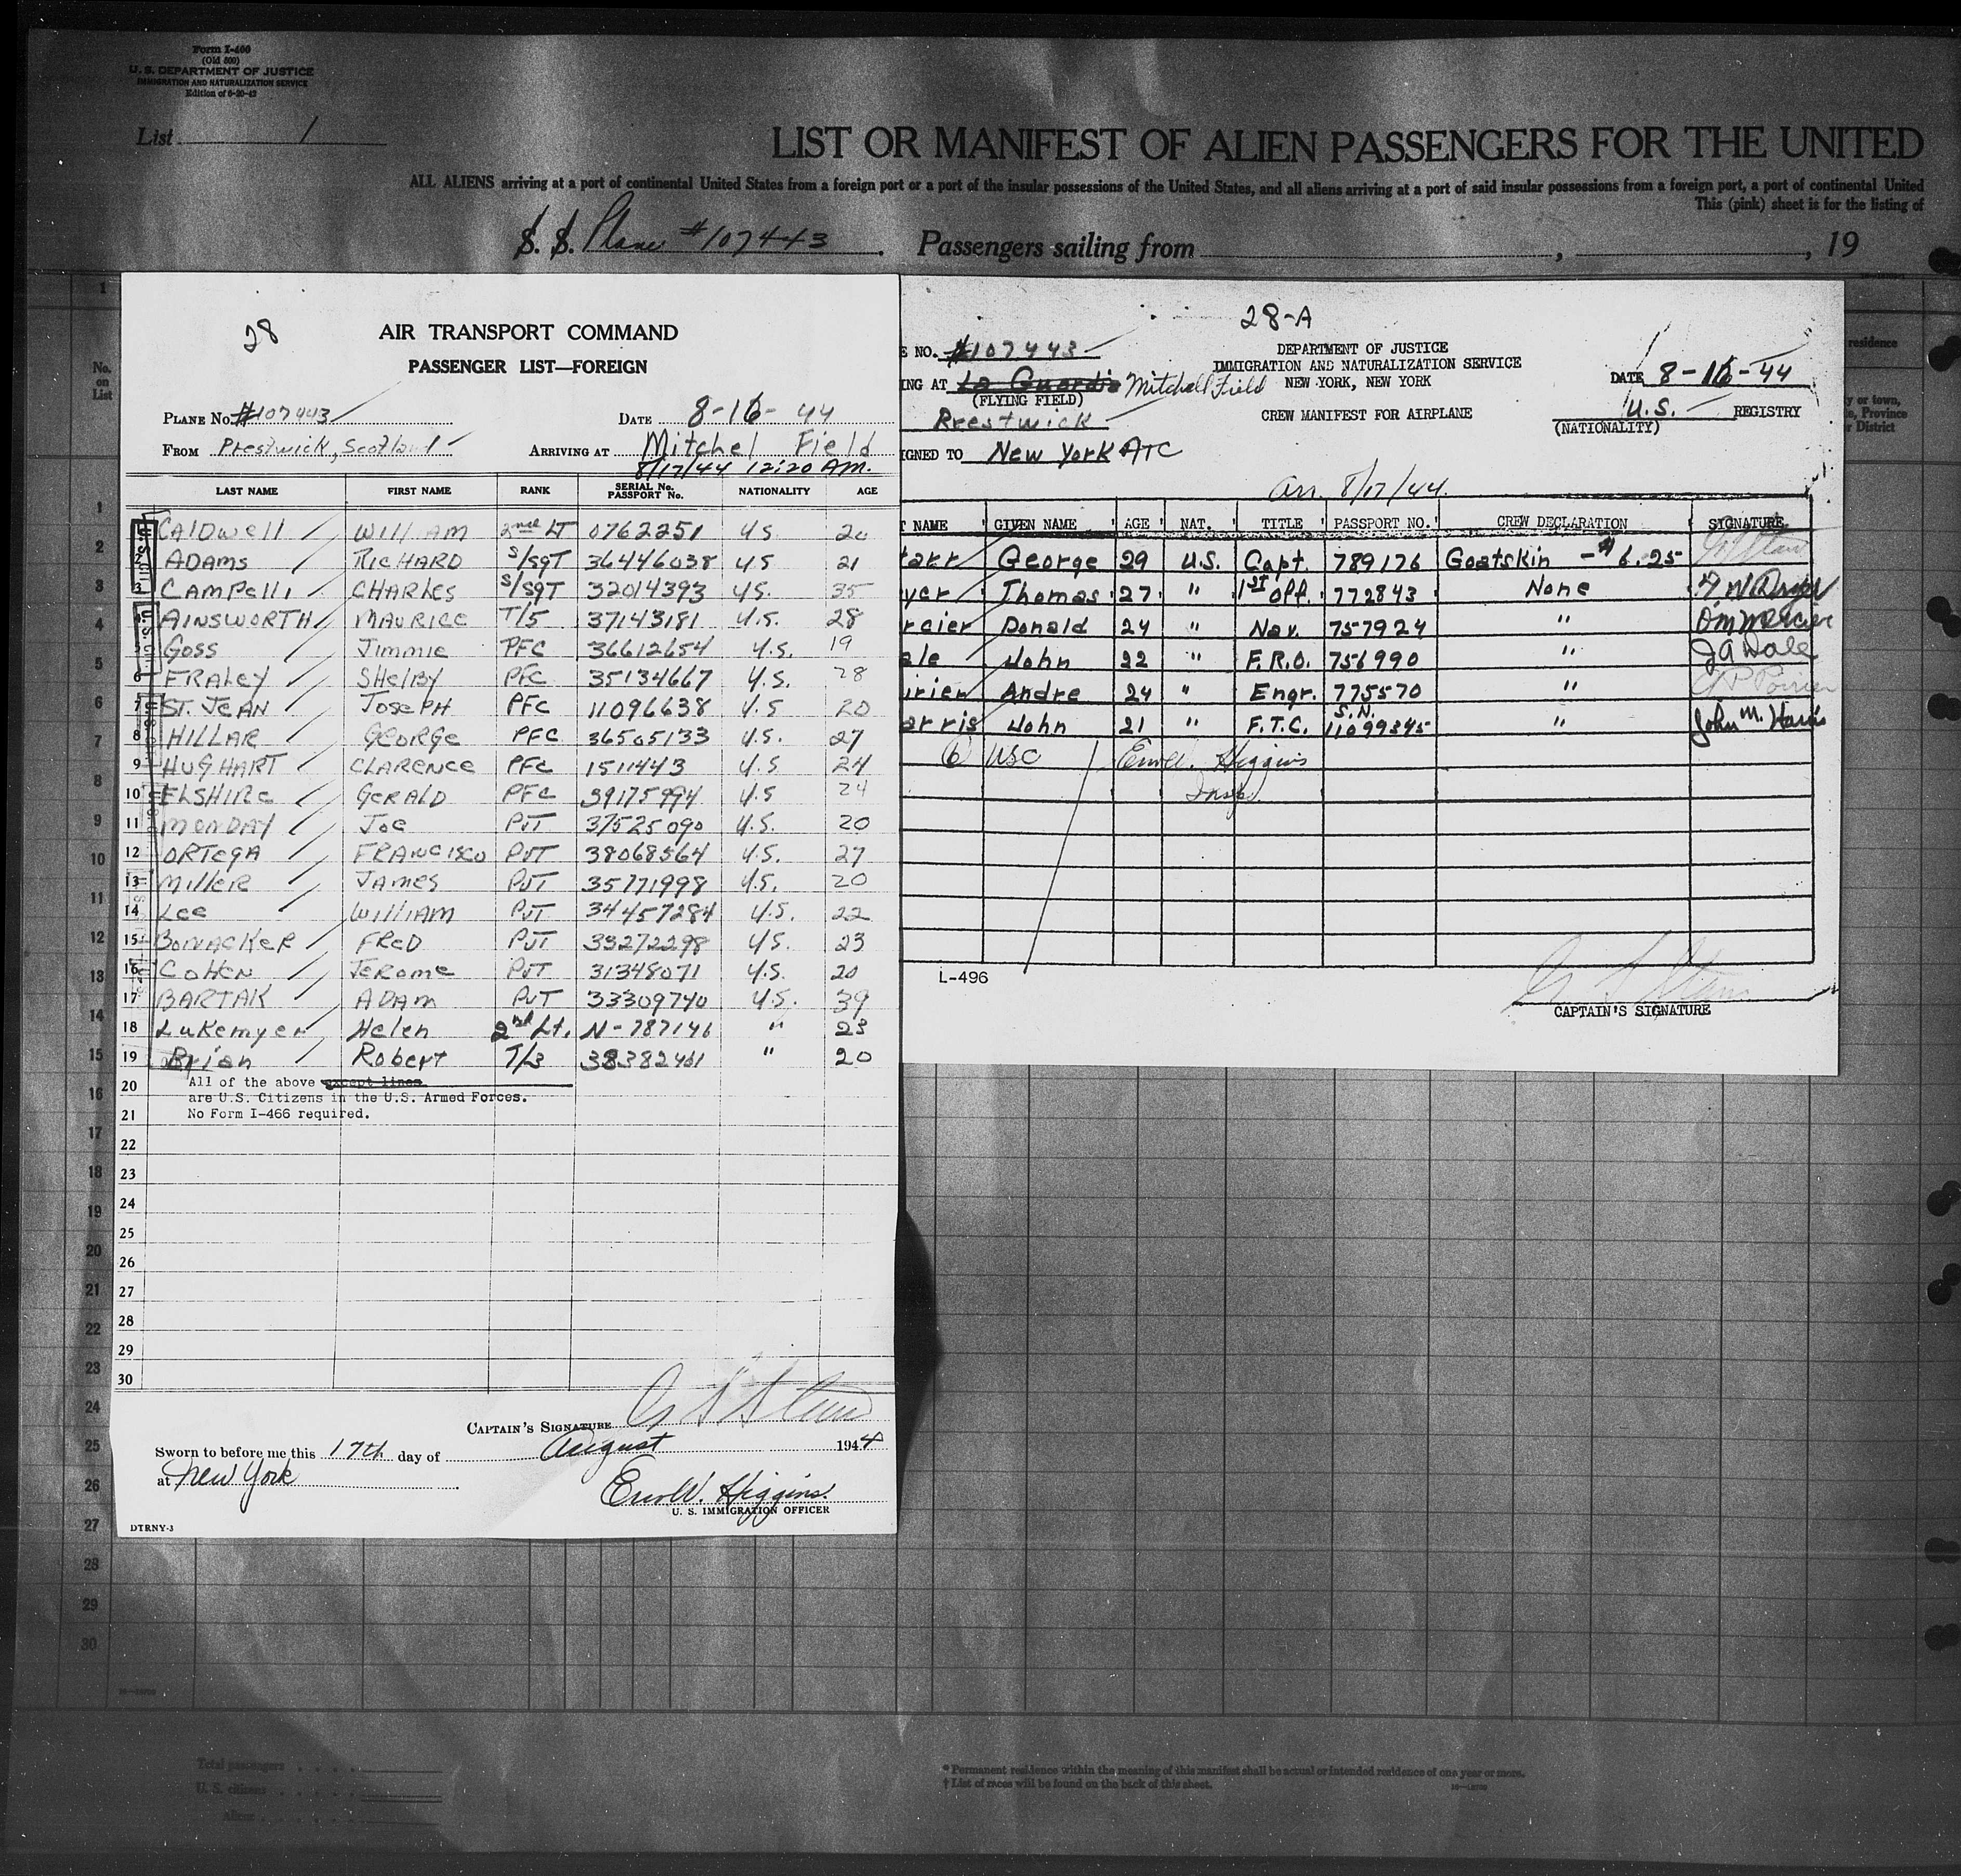 Form I-400
(Old 500)
U. S. DEPARTMENT OF JUSTICE
IMMIGRATION AND NATURALIZATION SERVICE
List 1
LIST OR MANIFEST OF ALIEN PASSENGERS FOR THE UNITED
ALL ALIENS arriving at a port of continental United States from a foreign port or a port of the insular possessions of the United States, and all aliens arriving at a port of said insular possessions from a foreign port, a port of continental United
This (pink) sheet is for the listing of
S. S. Plane #107443. Passengers sailing from , , 19
28
AIR TRANSPORT COMMAND
PASSENGER LIST—FOREIGN
PLANE No. #107443 DATE 8-16-44
FROM Prestwick, Scotland ARRIVING AT Mitchel Field
8/17/44 12:20 AM.
LAST NAME FIRST NAME RANK SERIAL No. PASSPORT No. NATIONALITY AGE
1 CALDWELL WILLIAM 2nd LT 0762251 U.S.
2 ADAMS RICHARD S/SGT 36446038 U.S. 21
3 CAMPELLI CHARLES S/SGT 32014393 U.S. 35
4 AINSWORTH MAURICE T/5 37143181 U.S. 28
5 GOSS JIMMIE PFC 36612654 U.S. 19
6 FRALEY SHELBY PFC 35134667 U.S. 28
7 ST. JEAN JOSEPH PFC 11096638 U.S 20
8 HILLAR GEORGE PFC 36505133 U.S. 27
9 HUGHART CLARENCE PFC 1511443 U.S 24
10 ELSHIRE GERALD PFC 39175994 U.S 24
11 MONDAY JOE PVT 37525090 U.S. 20
12 ORTEGA FRANCISCO PVT 38068564 U.S. 27
13 MILLER JAMES PVT 35771998 U.S. 20
14 LEE WILLIAM PVT 34457284 U.S. 22
15 BONACKER FRED PVT 33272298 U.S. 23
16 COHEN JEROME PVT 31348071 U.S. 20
17 BARTAK ADAM PVT 33309740 U.S. 39
18 Lukemyer Helen 2nd Lt. N-787146 " 23
19 Brian Robert T/3 38382461 " 20
20 All of the above except lines
are U.S. Citizens in the U.S. Armed Forces.
21 No Form I-466 required.
22
23
24
25
26
27
28
29
30
CAPTAIN'S SIGNATURE
Sworn to before me this 17th day of August 1944
at New York
Higgins
U. S. IMMIGRATION OFFICER
DTRNY-3
28-A
E NO. #107443
DEPARTMENT OF JUSTICE
IMMIGRATION AND NATURALIZATION SERVICE
NEW YORK, NEW YORK
DATE 8-16-44
ING AT La Guardia Mitchell Field
(FLYING FIELD)
Prestwick
CREW MANIFEST FOR AIRPLANE
U.S. REGISTRY
(NATIONALITY)
IGNED TO New York ATC
Arr. 8/17/44.
T NAME GIVEN NAME AGE NAT. TITLE PASSPORT NO. CREW DECLARATION SIGNATURE
tarr George 29 U.S. Capt. 789176 Goatskin - $6.25
yer Thomas 27 " 1st Off. 772843 None
rcier Donald 24 " Nav. 757924 " D M Mercier
ale John 22 " F.R.O. 756990 " J A Dale
irier Andre 24 " Engr. 775570 " Poirier
arris John 21 " F.T.C. S.N. 11099345 " John M. Harris
6 USC Higgins
Insp.
L-496
CAPTAIN'S SIGNATURE
No. on List
1
2
3
4
5
6
7
8
9
10
11
12
13
14
15
16
17
18
19
20
21
22
23
24
25
26
27
28
29
30
residence
Total passengers
U. S. citizens
Aliens
* Permanent residence within the meaning of this manifest shall be actual or intended residence of one year or more.
† List of races will be found on the back of this sheet.